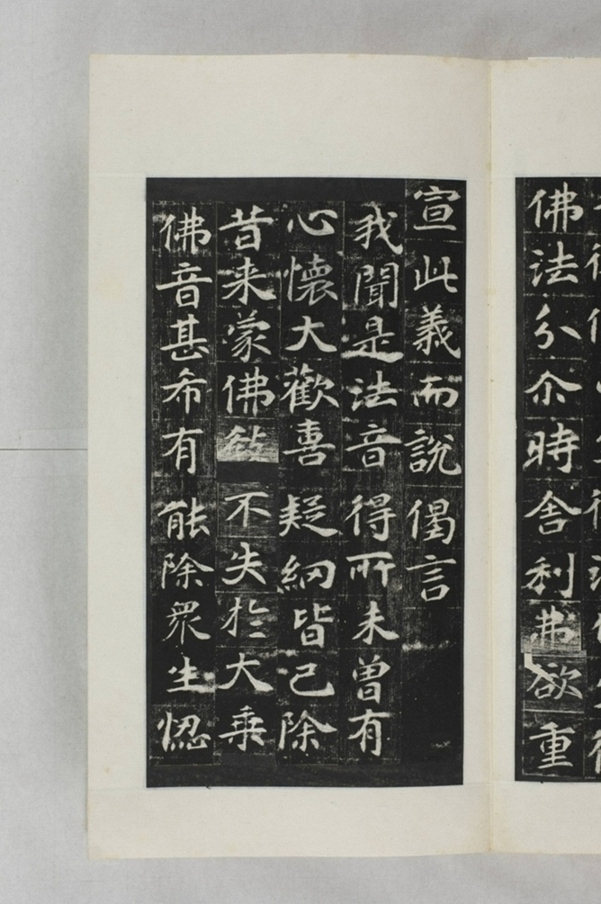 佛法分尒時舍利弗欲重
宣此義而說偈言
我聞是法音得所未曾有
心懷大歡喜疑網皆已除
昔来蒙佛教不失於大乗
佛音甚希有能除眾生惱